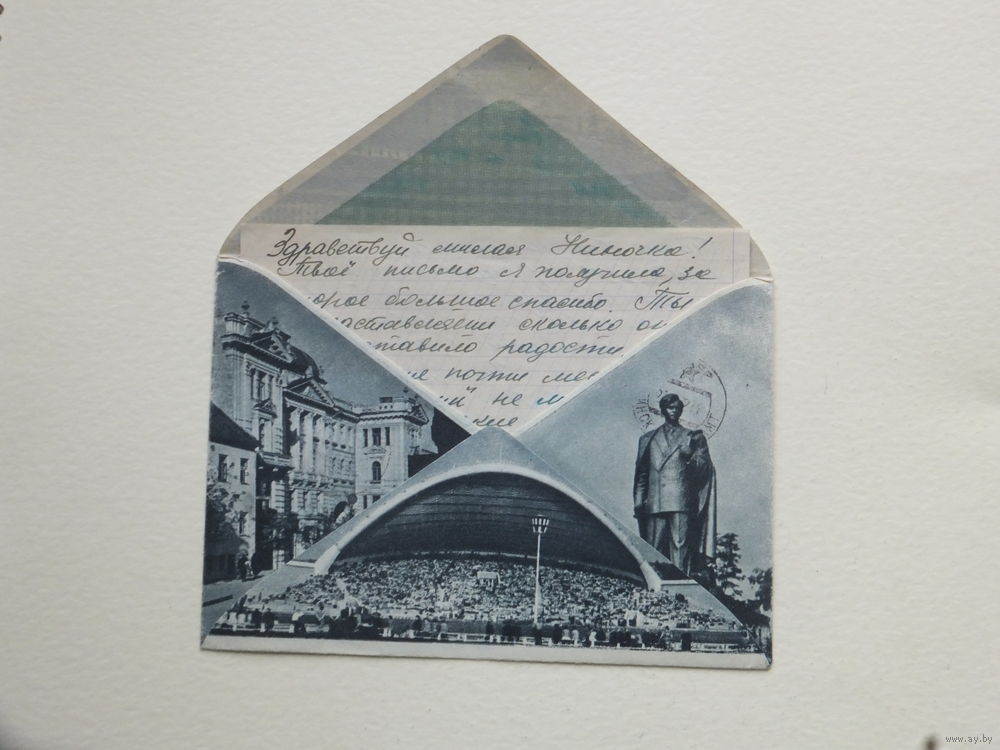 Здравствуй милая Ниночка!
Твоё письмо я получила, за
орое большое спасибо. Ты
сколько
ставило радости
почти
ий не м
ние
www.ay.by